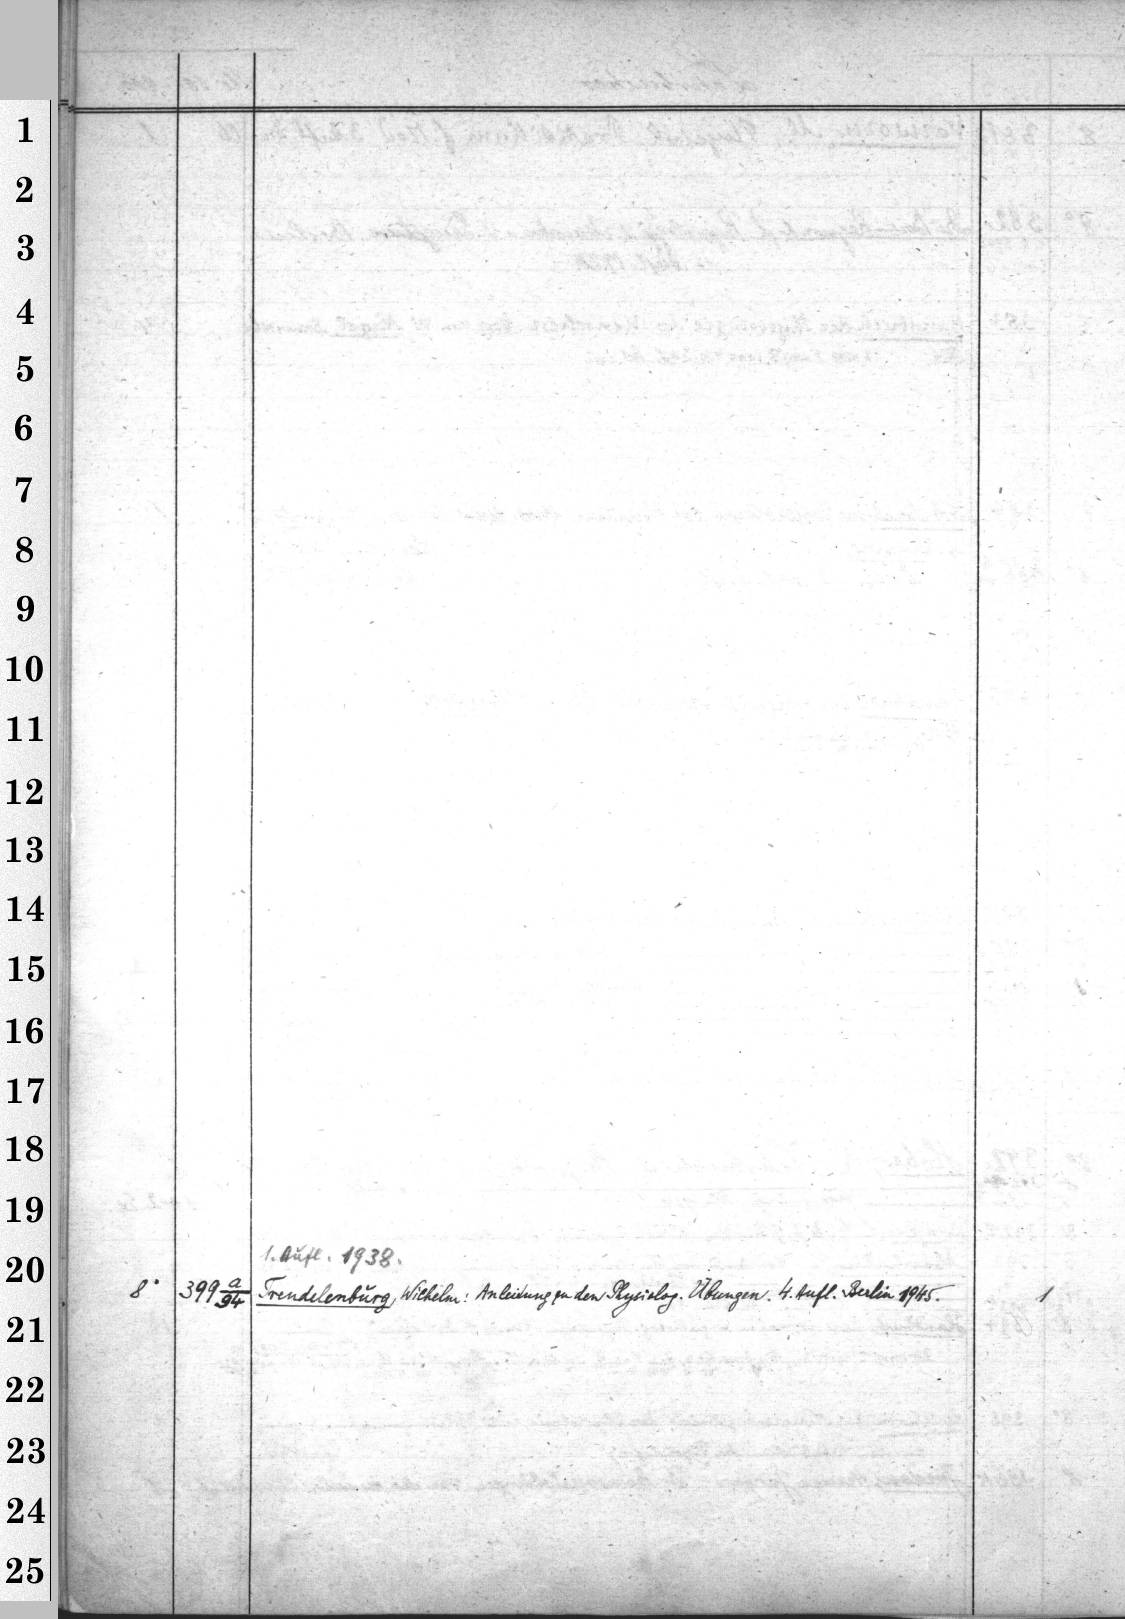 1
2
3
4
5
6
7
8
9
10
11
12
13
14
15
16
17
18
19
20
21
22
23
24
25
1. Aufl. 1938.
8° 399 a/94 Trendelenburg, Wilhelm: Anleitung zu den Physiolog. Übungen. 4. Aufl. Berlin 1945. 1